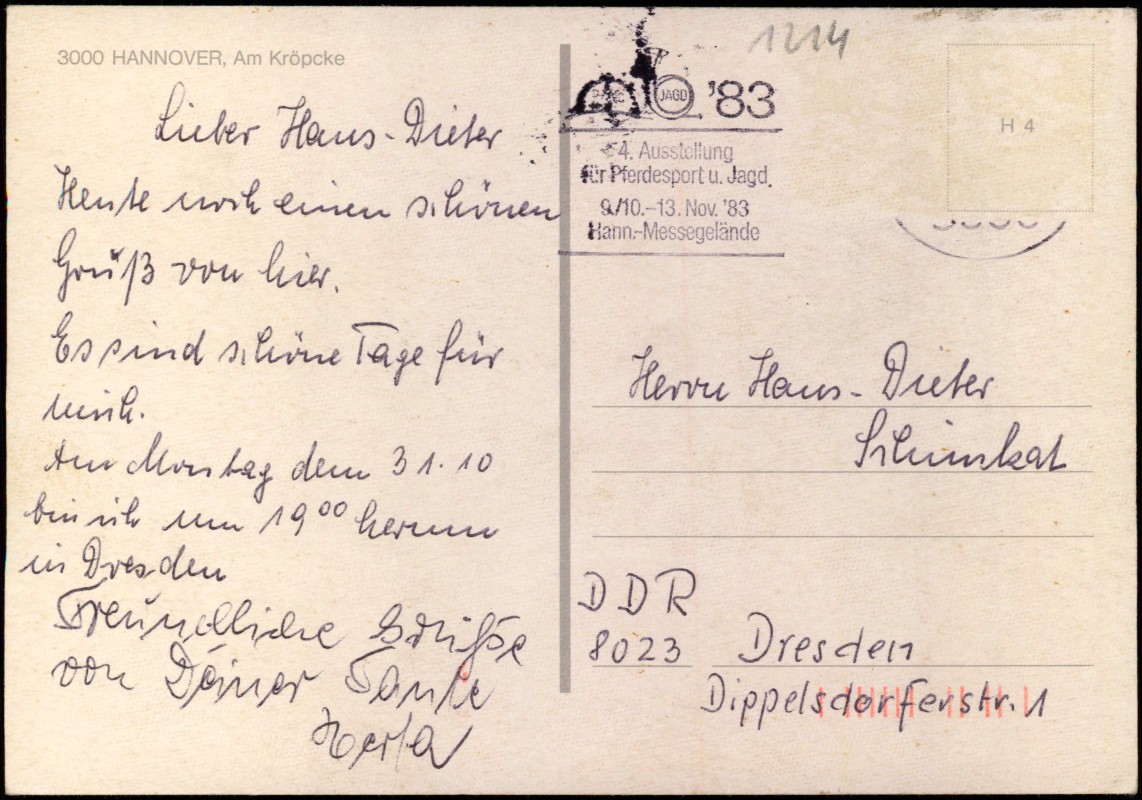 3000 HANNOVER, Am Kröpcke
Lieber Hans-Dieter
Heute noch einen schönen
Gruß von hier.
Es sind schöne Tage für
mich.
Am Montag dem 31.10
bin ich um 19⁰⁰ herum
in Dresden
Freundliche Grüße
von Deiner Tante
Herta
1214
JAGD '83
4. Ausstellung
für Pferdesport u. Jagd,
9./10.–13. Nov. '83
Hann.-Messegelände
H 4
3000
Herrn Hans-Dieter
Schimkat
DDR
8023 Dresden
Dippelsdorferstr. 1